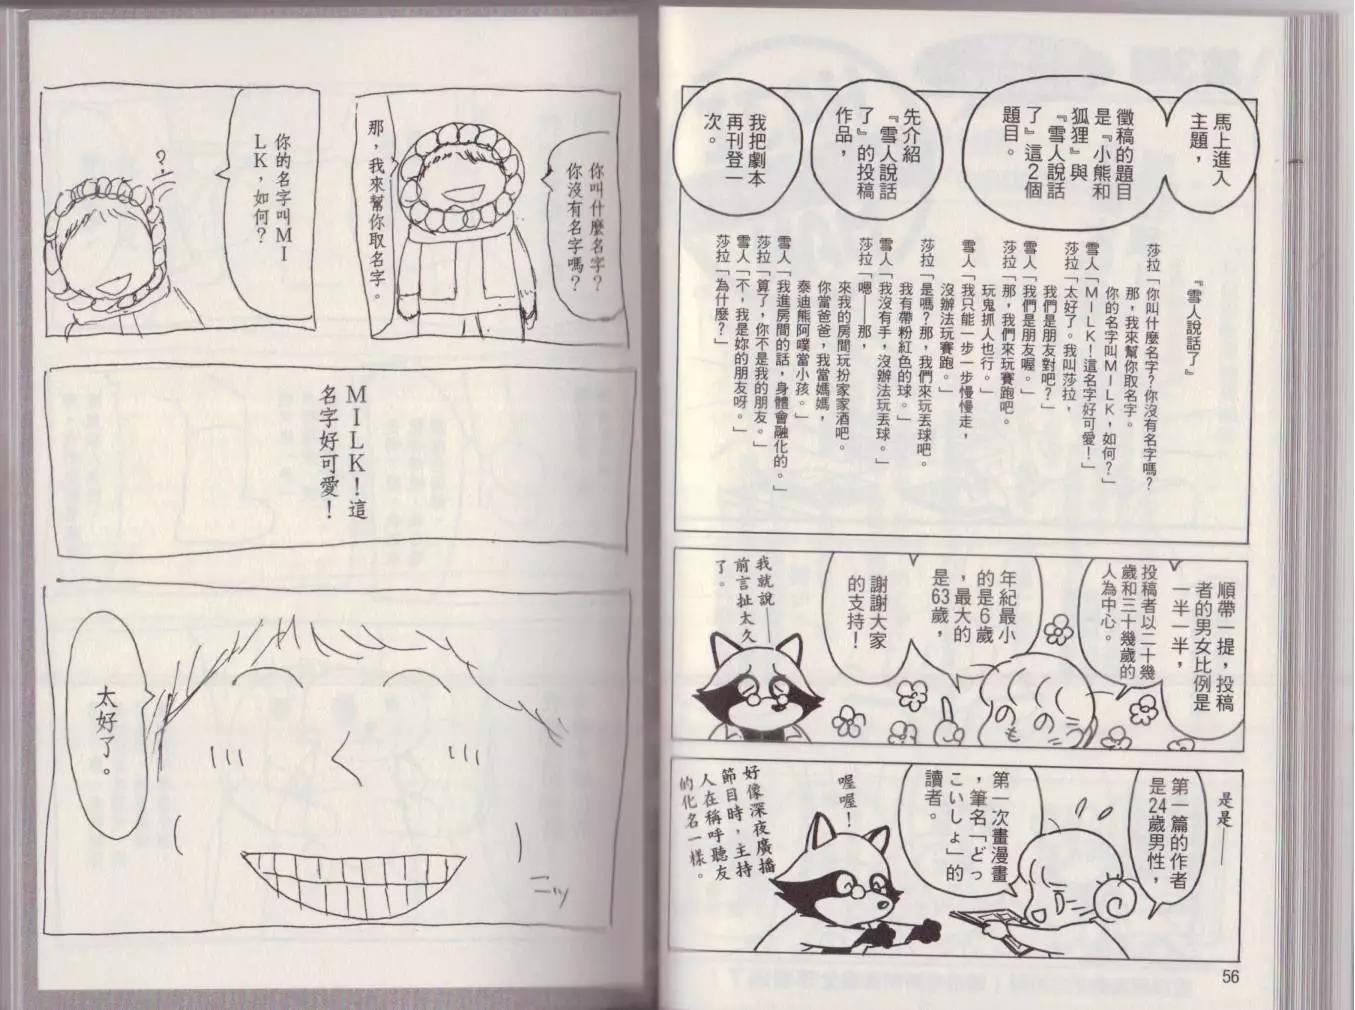 馬上進入
主題，
徵稿的題目
是『小熊和
狐狸』與
『雪人說話
了』這2個
題目。
先介紹
『雪人說話
了』的投稿
作品，
我把劇本
再刊登一
次。
『雪人說話了』
莎拉「你叫什麼名字？你沒有名字嗎？
那，我來幫你取名字。
你的名字叫ＭＩＬＫ，如何？」
雪人「ＭＩＬＫ！這名字好可愛！」
莎拉「太好了。我叫莎拉，
我們是朋友對吧？」
雪人「我們是朋友喔。」
莎拉「那，我們來玩賽跑吧。
玩鬼抓人也行。」
雪人「我只能一步一步慢慢走，
沒辦法玩賽跑。」
莎拉「是嗎？那，我們來玩丟球吧。
我有帶粉紅色的球。」
雪人「我沒有手，沒辦法玩丟球。」
莎拉「嗯——那，
來我的房間玩扮家家酒吧。
你當爸爸，我當媽媽，
泰迪熊阿噗當小孩。」
雪人「我進房間的話，身體會融化的。」
莎拉「算了，你不是我的朋友。」
雪人「不，我是妳的朋友呀。」
莎拉「為什麼？」
順帶一提，投稿
者的男女比例是
一半一半，
投稿者以二十幾
歲和三十幾歲的
人為中心。
年紀最小
的是6歲
，最大的
是63歲，
謝謝大家
的支持！
我就說——
前言扯太久
了。
のの
も
是是——
第一篇的作者
是24歲男性，
第一次畫漫畫
，筆名「どっ
こいしょ」的
讀者。
喔喔！
好像深夜廣播
節目時，主持
人在稱呼聽友
的化名一樣。
56
你叫什麼名字？
你沒有名字嗎？
那，我來幫你取名字。
你的名字叫ＭＩ
ＬＫ，如何？
？
ＭＩＬＫ！這
名字好可愛！
太好了。
ニッ